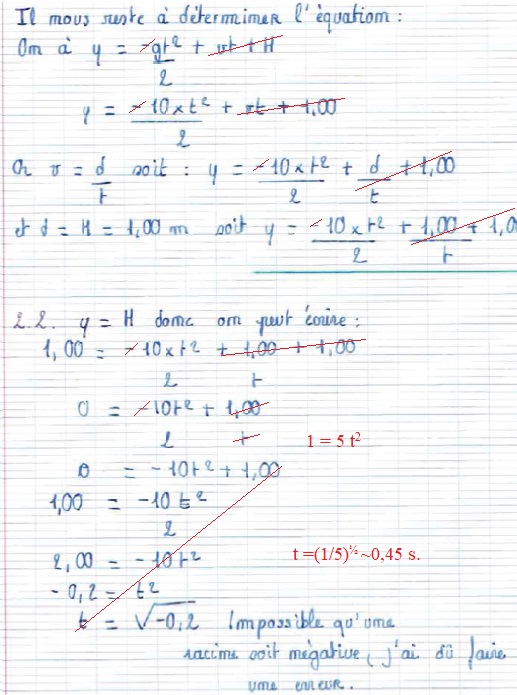 Il nous reste à déterminer l'équation :
On à y = -gt²/2 + vt + H
y = -10 x t²/2 + vt + 1,00
Or v = d/t soit : y = -10 x t²/2 + d/t + 1,00
et d = H = 1,00 m soit y = -10 x t²/2 + 1,00/t + 1,0
2.2. y = H donc on peut écrire :
1,00 = -10 x t²/2 + 1,00/t + 1,00
0 = -10t²/2 + 1,00/t
1 = 5 t²
0 = -10t² + 1,00
1,00 = -10 t²/2
2,00 = -10t²
t =(1/5)^½ ~0,45 s.
-0,2 = t²
t = √-0,2 Impossible qu'une
racine soit négative, j'ai dû faire
une erreur.